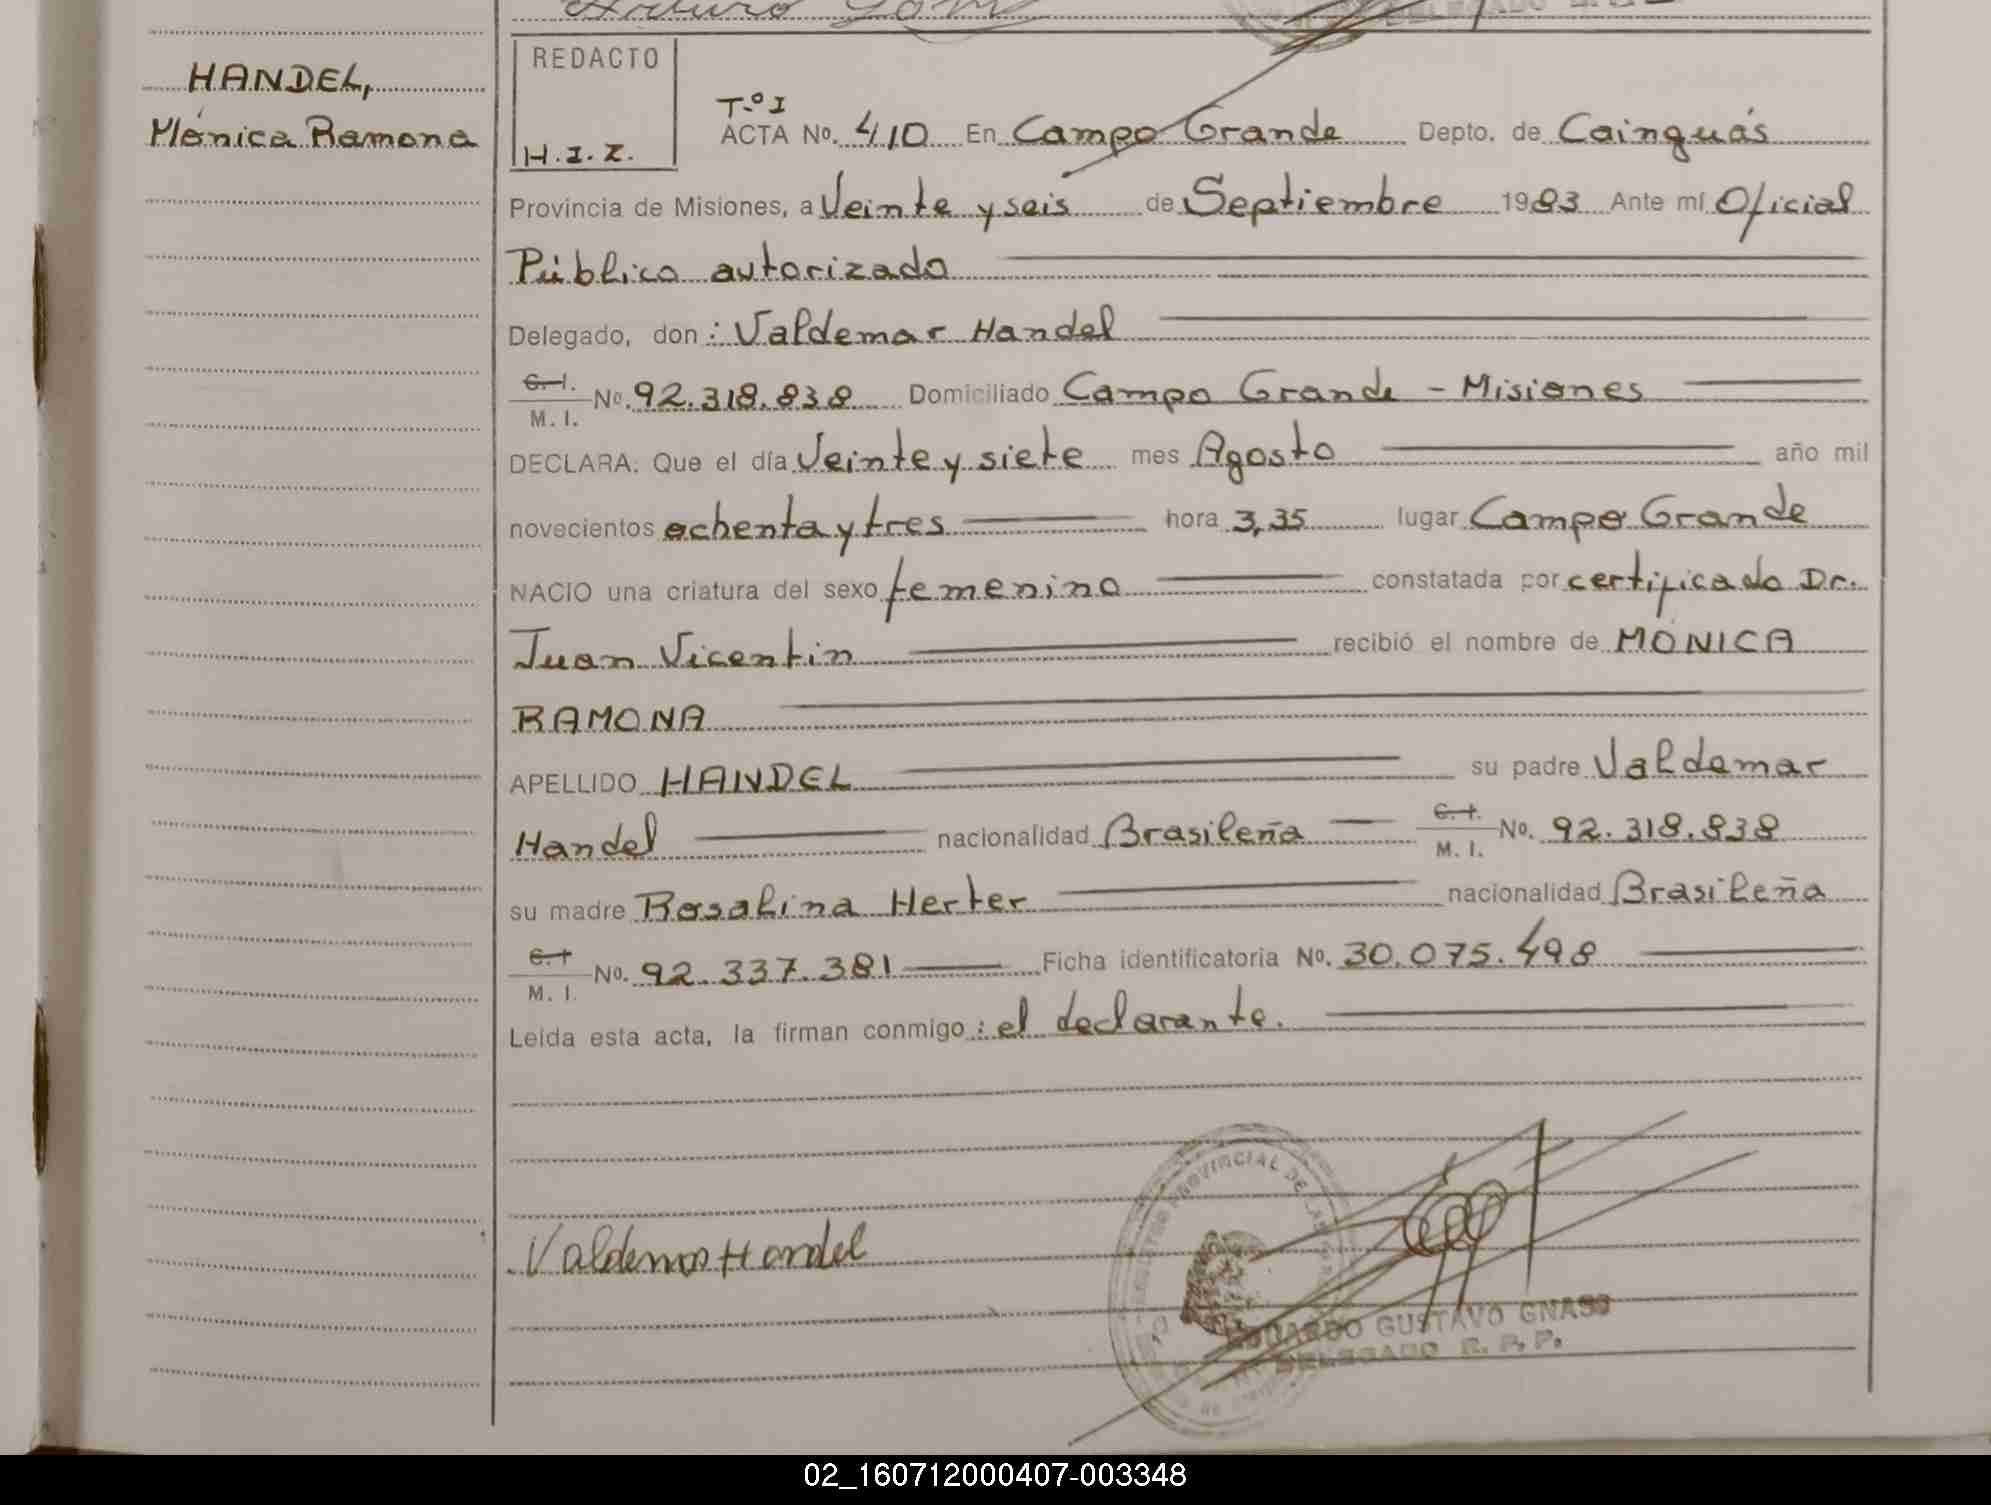 Arturo
DELEGADO
HANDEL,
Mónica Ramona
REDACTO
H.I.Z.
T.º I
ACTA No. 410 En Campo Grande Depto. de Cainguás
Provincia de Misiones, a Veinte y seis de Septiembre 1983 Ante mí Oficial
Público autorizado
Delegado, don: Valdemar Handel
C. I.
M. I. No. 92.318.838 Domiciliado Campo Grande - Misiones
DECLARA: Que el día Veinte y siete mes Agosto año mil
novecientos ochenta y tres hora 3,35 lugar Campo Grande
NACIO una criatura del sexo femenino constatada por certificado Dr.
Juan Vicentin recibió el nombre de MÓNICA
RAMONA
APELLIDO HANDEL su padre Valdemar
Handel nacionalidad Brasileña C. I. M. I. No. 92.318.838
su madre Rosalina Herter nacionalidad Brasileña
C. I.
M. I. No. 92.337.381 Ficha identificatoria No. 30.075.498
Leída esta acta, la firman conmigo: el declarante.
Valdemar Handel
PROVINCIAL DE LAS
EDUARDO GUSTAVO GNASS
DELEGADO R. P. P.
02_160712000407-003348